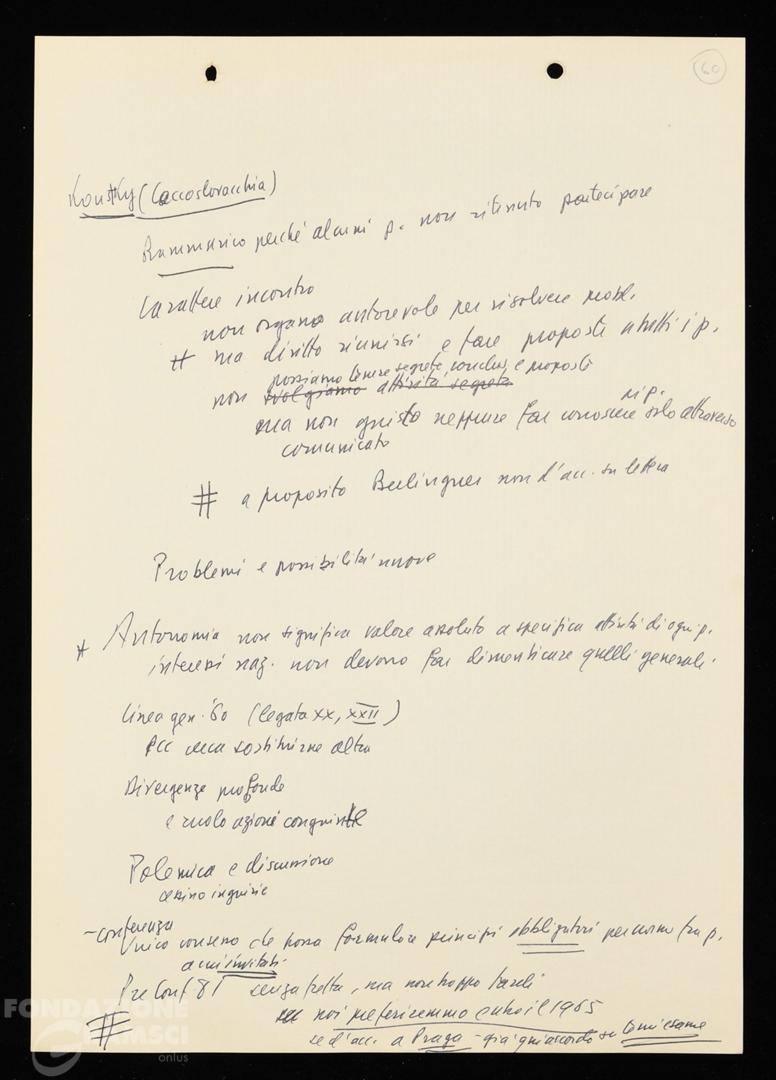 60
Koutsky (Caecoslovacchia)
Rammarico perché alcuni p. non ritenuto partecipare
Carattere incontro
non organo autorevole per risolvere probl.
# ma diritto riunirsi e fare proposte a tutti i p.
possiamo tenere segrete, conclus. e proposte
non svolgiamo attività segreta
ma non giusto neppure far conoscere ai p. solo attraverso
comunicato
# a proposito Berlinguer non d'acc. su lettera
Problemi e possibilità nuove
# Autonomia non significa valore assoluto a specifica attività di ogni p.
interessi naz. non devono far dimenticare quelli generali.
Linea gen. '60 (legata XX, XXII)
PCC cerca sostituirne altra
Divergenze profonde
e ruolo azioni congiunte
Polemica e discussione
cessino ingiurie
- conferenza
Unico consesso che possa formulare principi obbligatori per norme tra p.
Pre Conf 81 senza fretta, ma non troppo tardi
noi preferiremmo entro il 1965
#
se d'acc. a Praga - già
FONDAZIONE
GRAMSCI
onlus